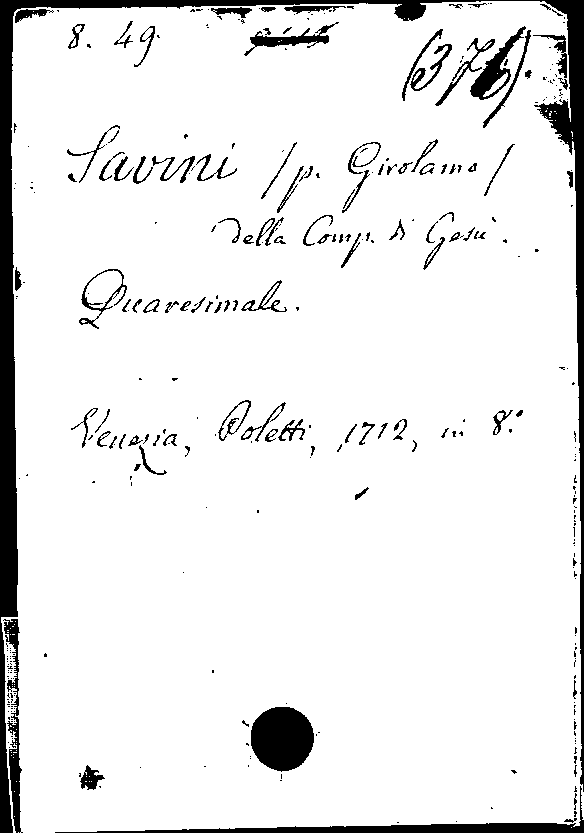 8. 49.
(376).
Savini /p. Girolamo/
della Comp. di Gesù.
Quaresimale.
Venezia, Poletti, 1712, in 8.º